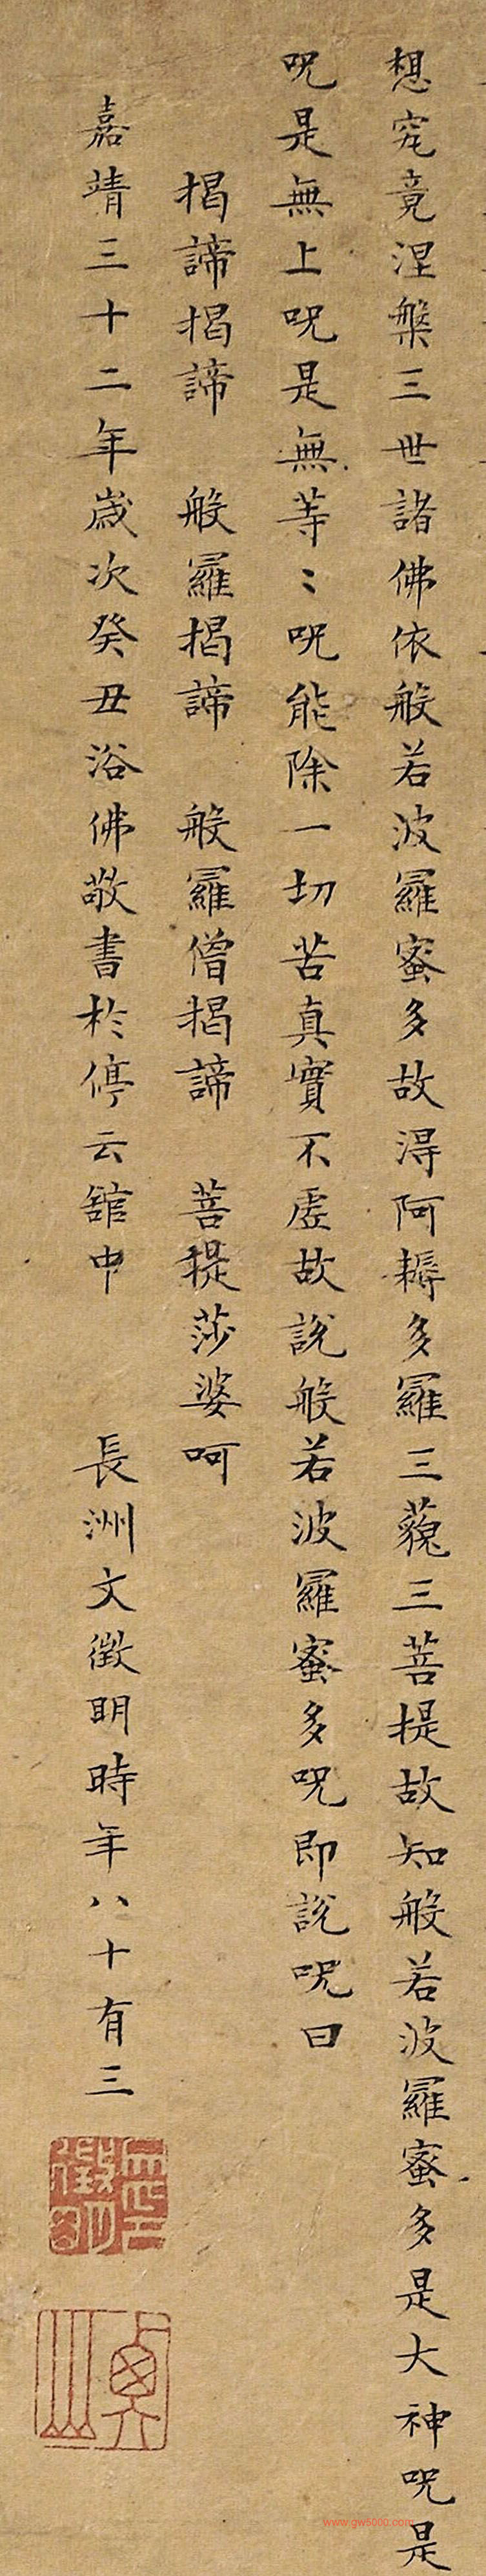 想究竟涅槃三世諸佛依般若波羅蜜多故得阿耨多羅三藐三菩提故知般若波羅蜜多是大神呪是
呪是無上呪是無等〻呪能除一切苦真實不虛故說般若波羅蜜多呪即說呪曰
揭諦揭諦 般羅揭諦 般羅僧揭諦 菩提莎婆呵
嘉靖三十二年歲次癸丑浴佛敬書於停云舘中 長洲文徵明時年八十有三
www.gw5000.com